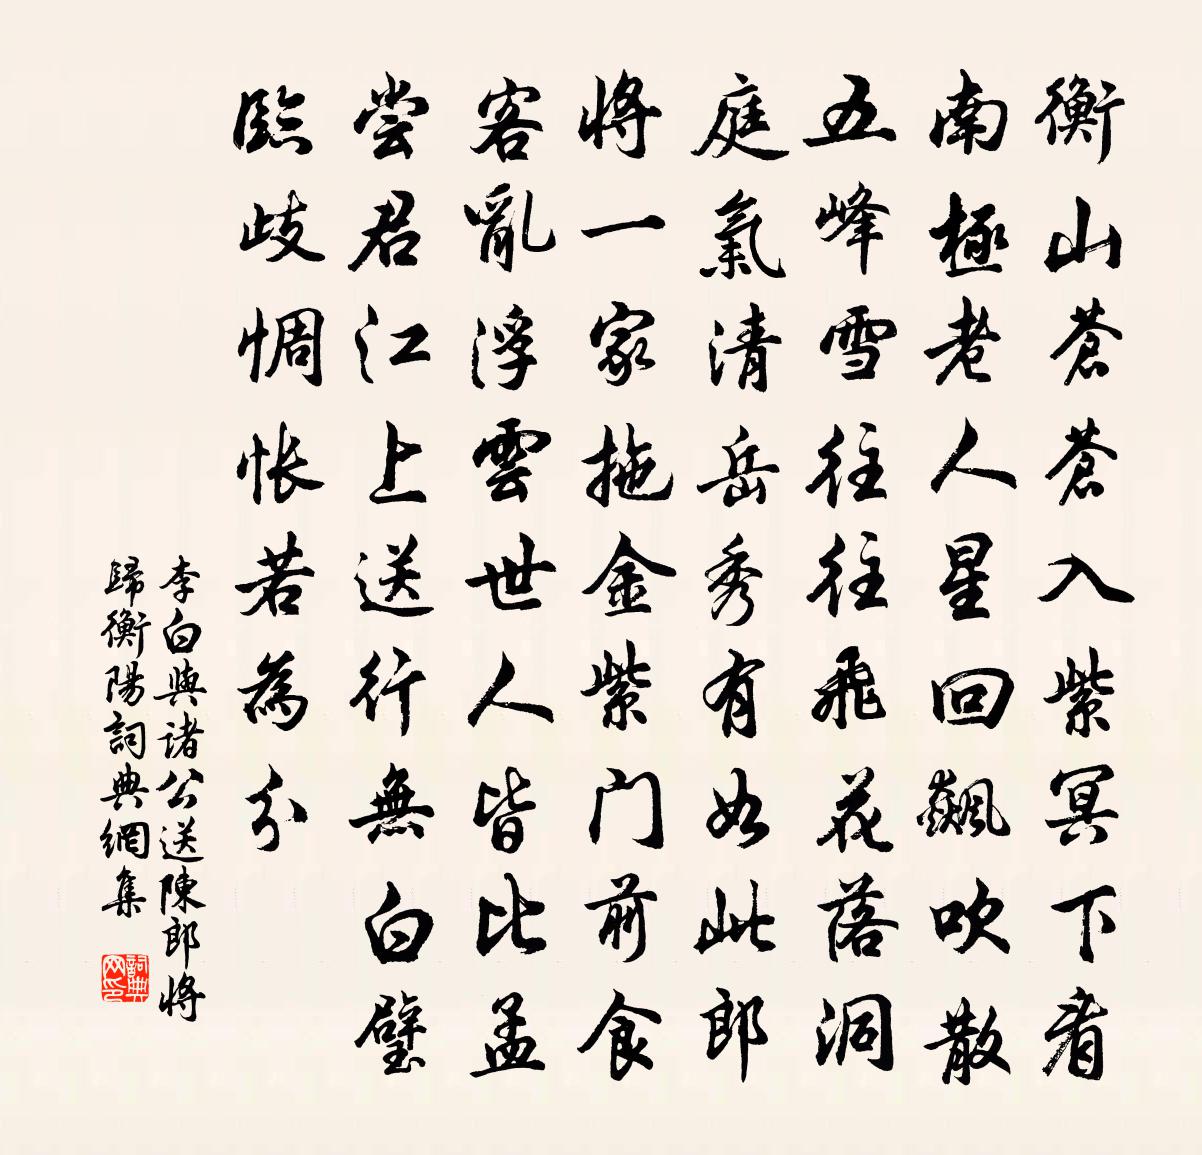 衡山蒼蒼入紫冥下看
南極老人星回飆吹散
五峰雪往往飛花落洞
庭氣清岳秀有如此郎
將一家拖金紫门前食
客亂浮雲世人皆比孟
尝君江上送行無白璧
臨歧惆怅若為分
李白與诸公送陳郎將
歸衡陽詞典網集
詞典
网印